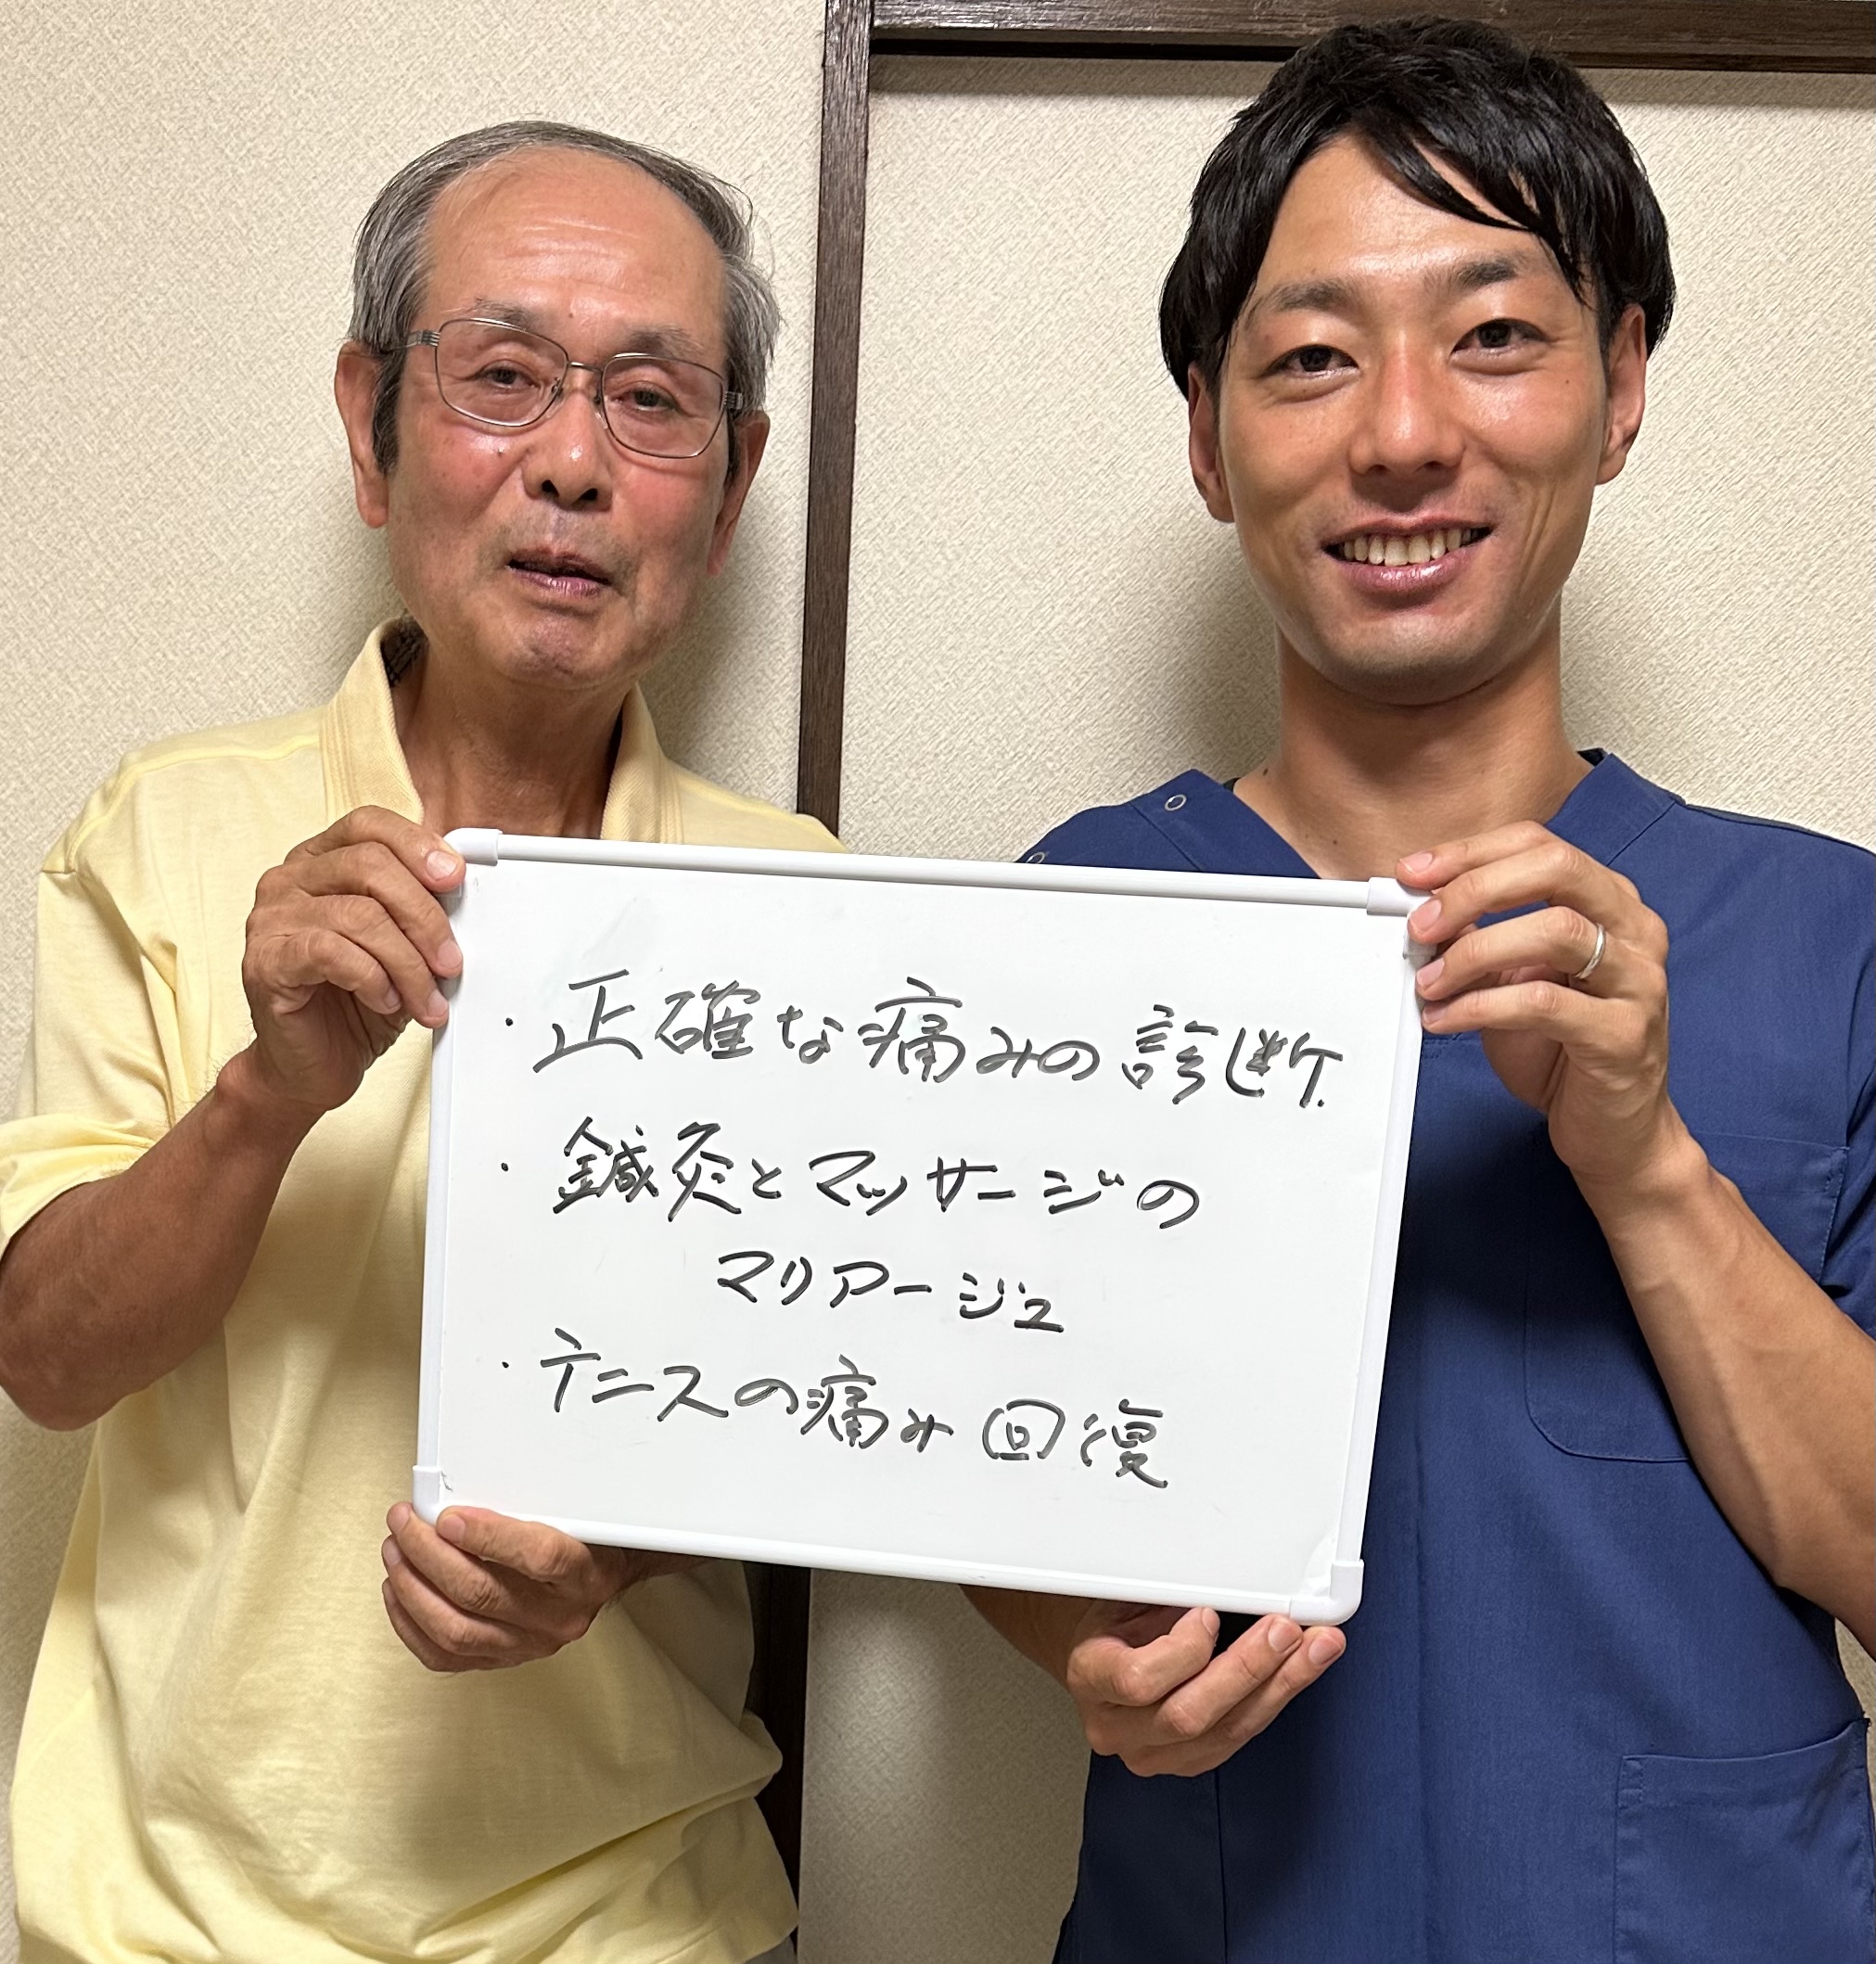 ・正確な痛みの診断
・鍼灸とマッサージの
マリアージュ
・テニスの痛み回復